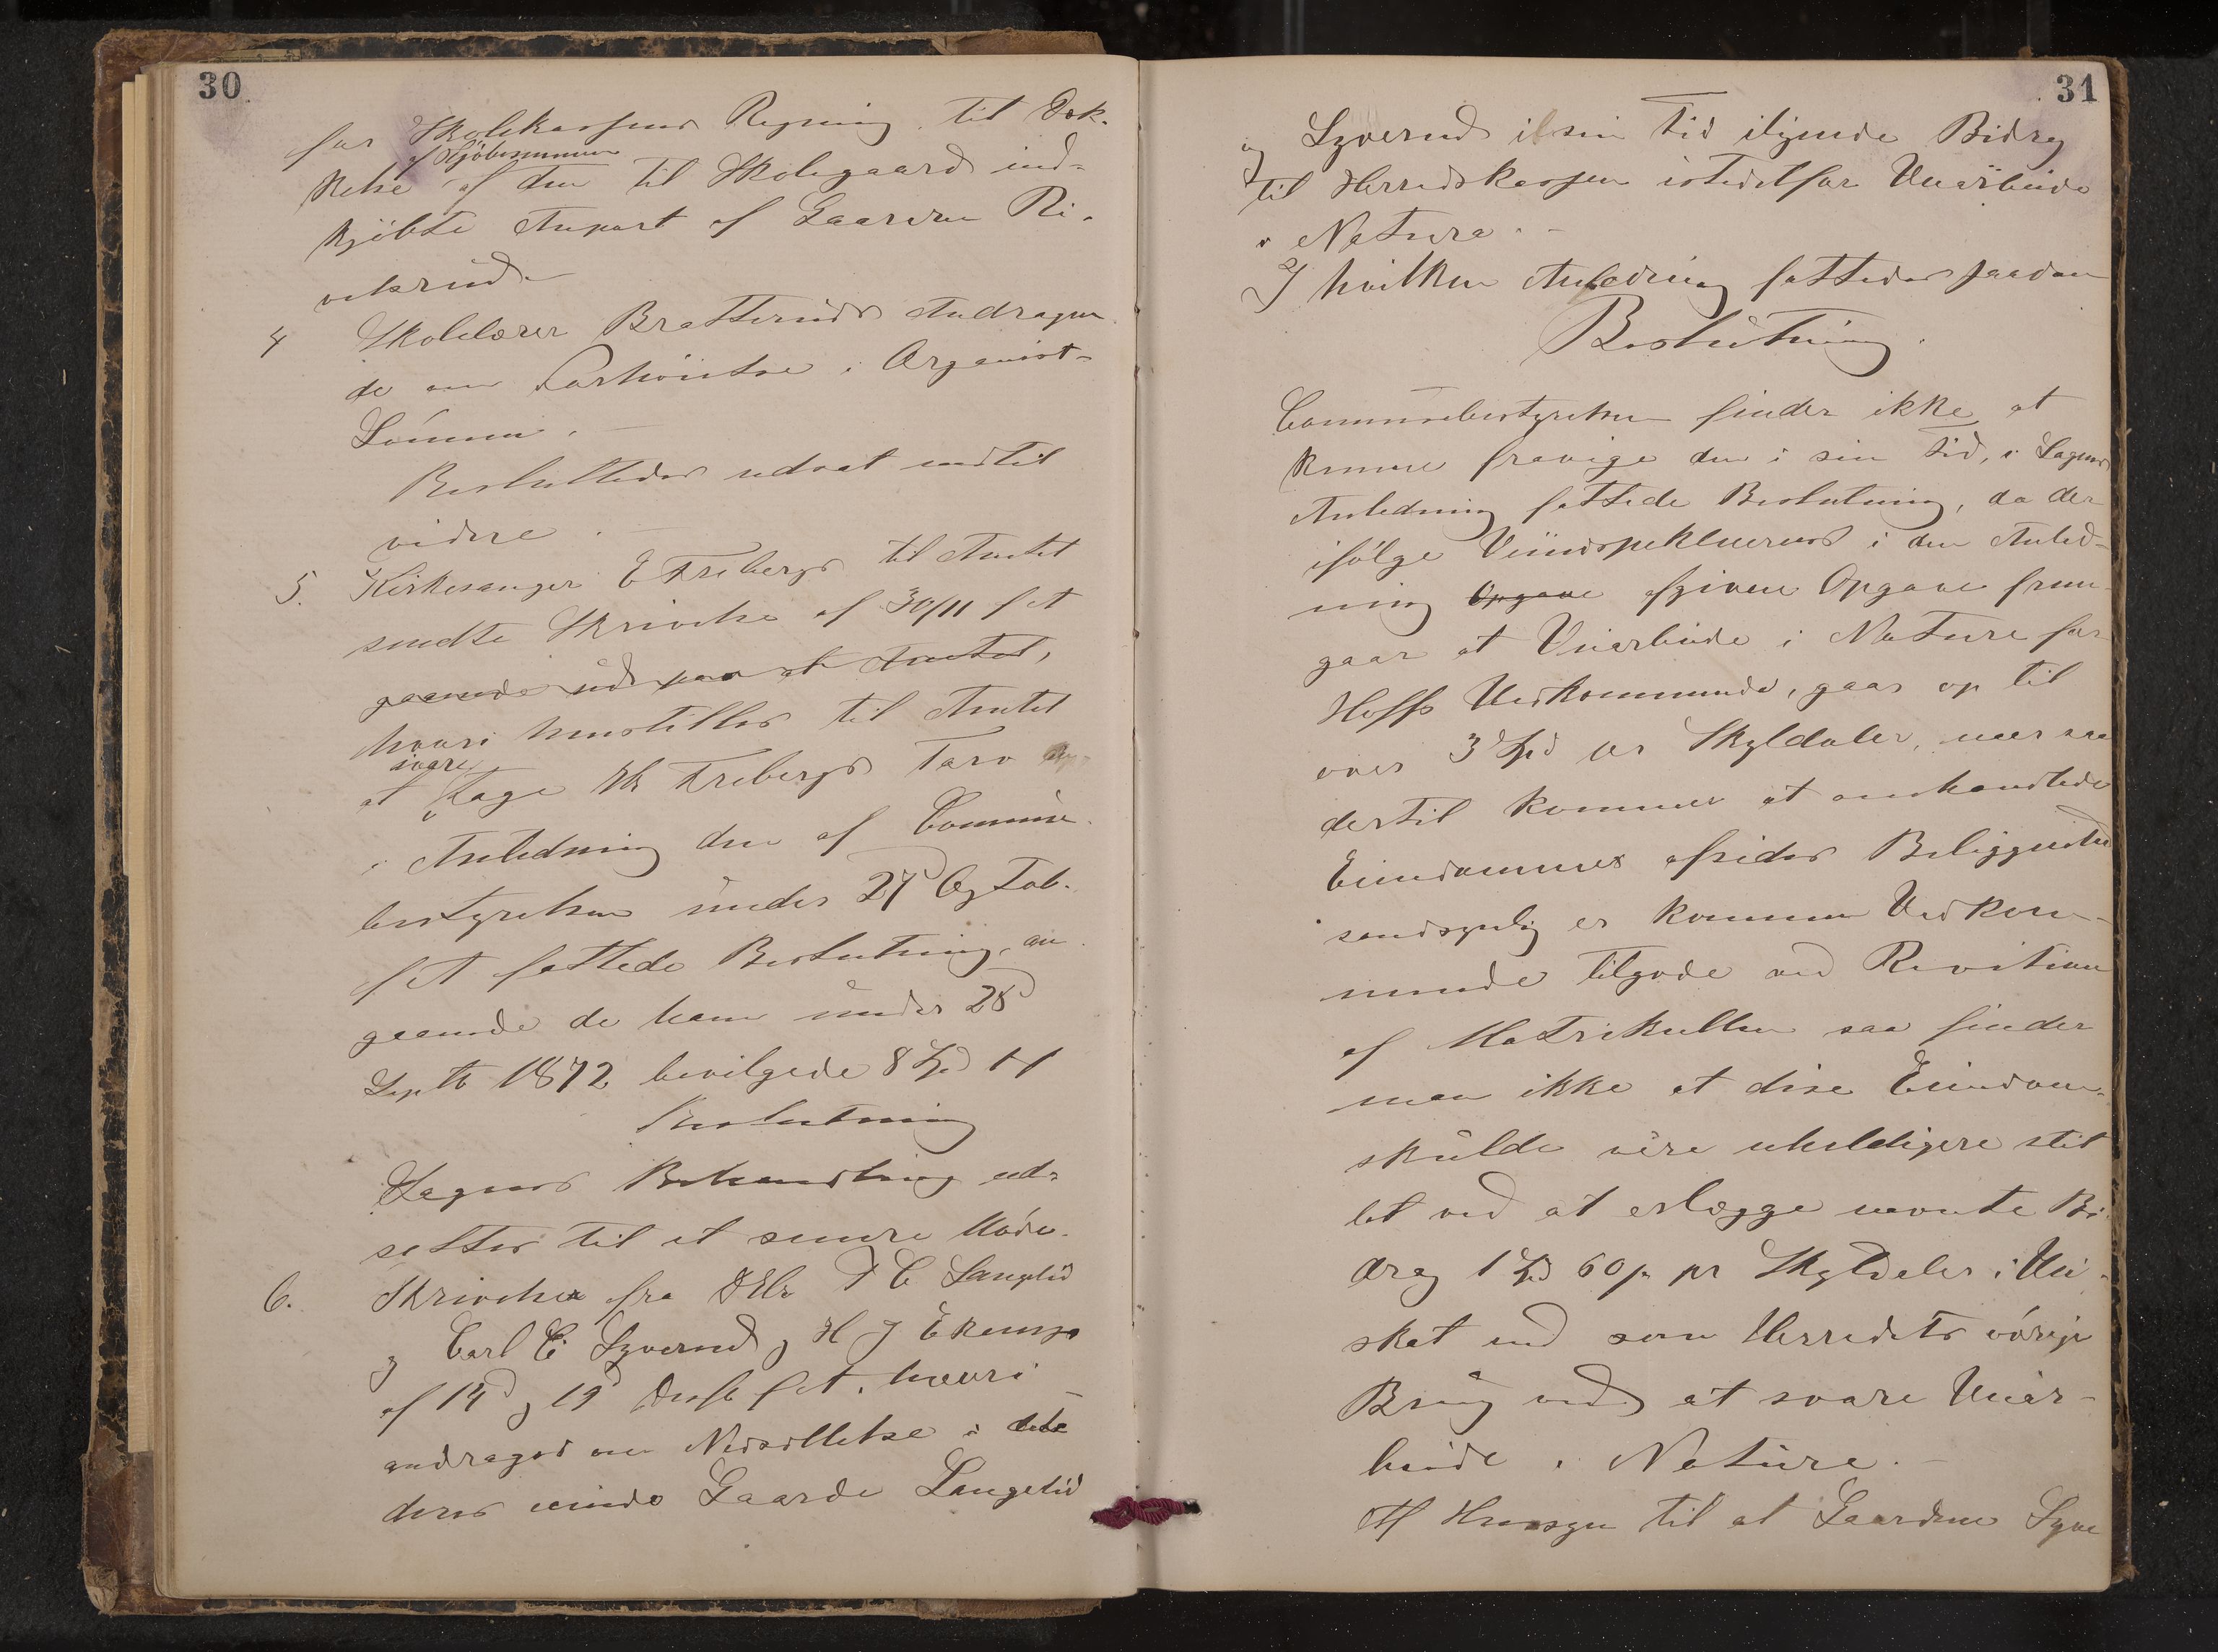 30
for Skolekassens Regning til Dæk-
af Kjøbesummen
kelse af den til Skolegaard ind-
kjøbte Anpart af Gaarden Ri-
velsrud.
4 Skolelærer Bratteruds Andragen
de om Forhöielse i Organist-
Lönnen.
Besluttedes udsat indtil
videre.
5. Kirkesanger E Frebergs til Amtet
sendte Skrivelse af 30/11 f A
gaaende ud paa at Amtet,
hvori henstilles til Amtet
svare
at tage Hr Frebergs Tarv
i Anledning den af Commune-
bestyrelsen under 27d Og Tob.
f A fattede Beslutning, an
gaaende de ham under 28d
Septb 1872 bevilgede 8 Spd
Beslutning
Sagens Behandling ud-
sattes til et senere Möde.
6. Skrivelse fra DHr T C Langelid
og Carl C. Lyverud og H J Ekemps
af 14d og 19d Decbr f A. hvori
andrages om Nedsættelse i det
deres eiende Gaarde Langelid
31
og Lyverud i sin Tid ilignede Bidrag
til Herredskassen istedetfor Veiarbeide
i Natura.
I hvilken Anledning fattedes saadan
Beslutning.
Communebestyrelsen finder ikke at
kunne fravige den i sin Tid, i Sagens
Anledning fattede Beslutning, da der
ifölge Veiinspekteurens i den Anled-
ning Opgave afgivne Opgave frem-
gaar at Veiarbeide i Nature for
Hoffs Vedkommende, gaar op til
over 3 Spd pr Skyldaler, naar saa
dertil kommer at omhandlede
Eiendommes afsides Beliggenhed
sandsynlig er kommen Vedkom-
mende tilgode ved Revitionen
af Matrikullen saa finder
man ikke at disse Eiendom-
skulde være uheldigere stil
let ved at erlægge nævnte Bi
drag 1 Spd 60 p pr Skyldaler i Vei-
skat end som Herredets övrige
Brug ved at svare Veiar-
beide i Nature.
Af Hensyn til at Gaardene Lyve